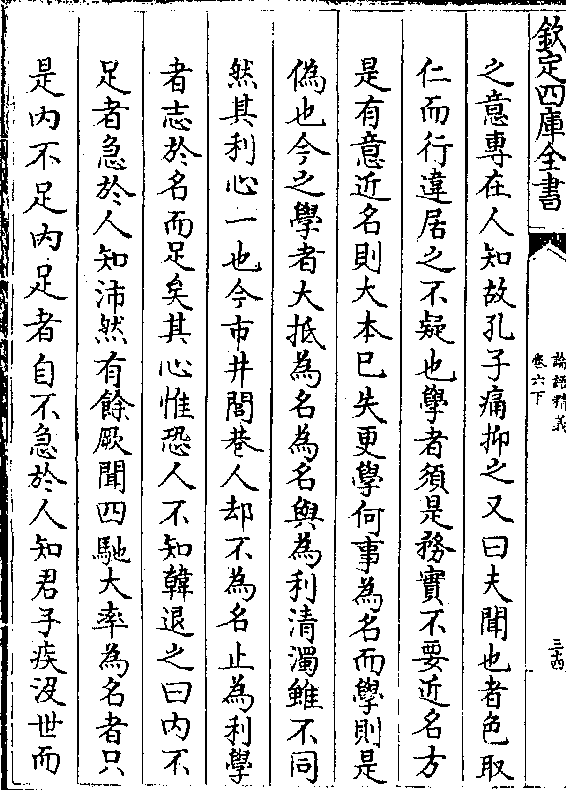 欽定四庫全書
論語精義
卷六下
三十四
之意專在人知故孔子痛抑之又曰夫聞也者色取
仁而行違居之不疑也學者須是務實不要近名方
是有意近名則大本已失更學何事為名而學則是
偽也今之學者大抵為名為名與為利清濁雖不同
然其利心一也今市井閭巷人却不為名止為利學
者志於名而足矣其心惟恐人不知韓退之曰内不
足者急於人知沛然有餘厥聞四馳大率為名者只
是内不足内足者自不急於人知君子疾沒世而